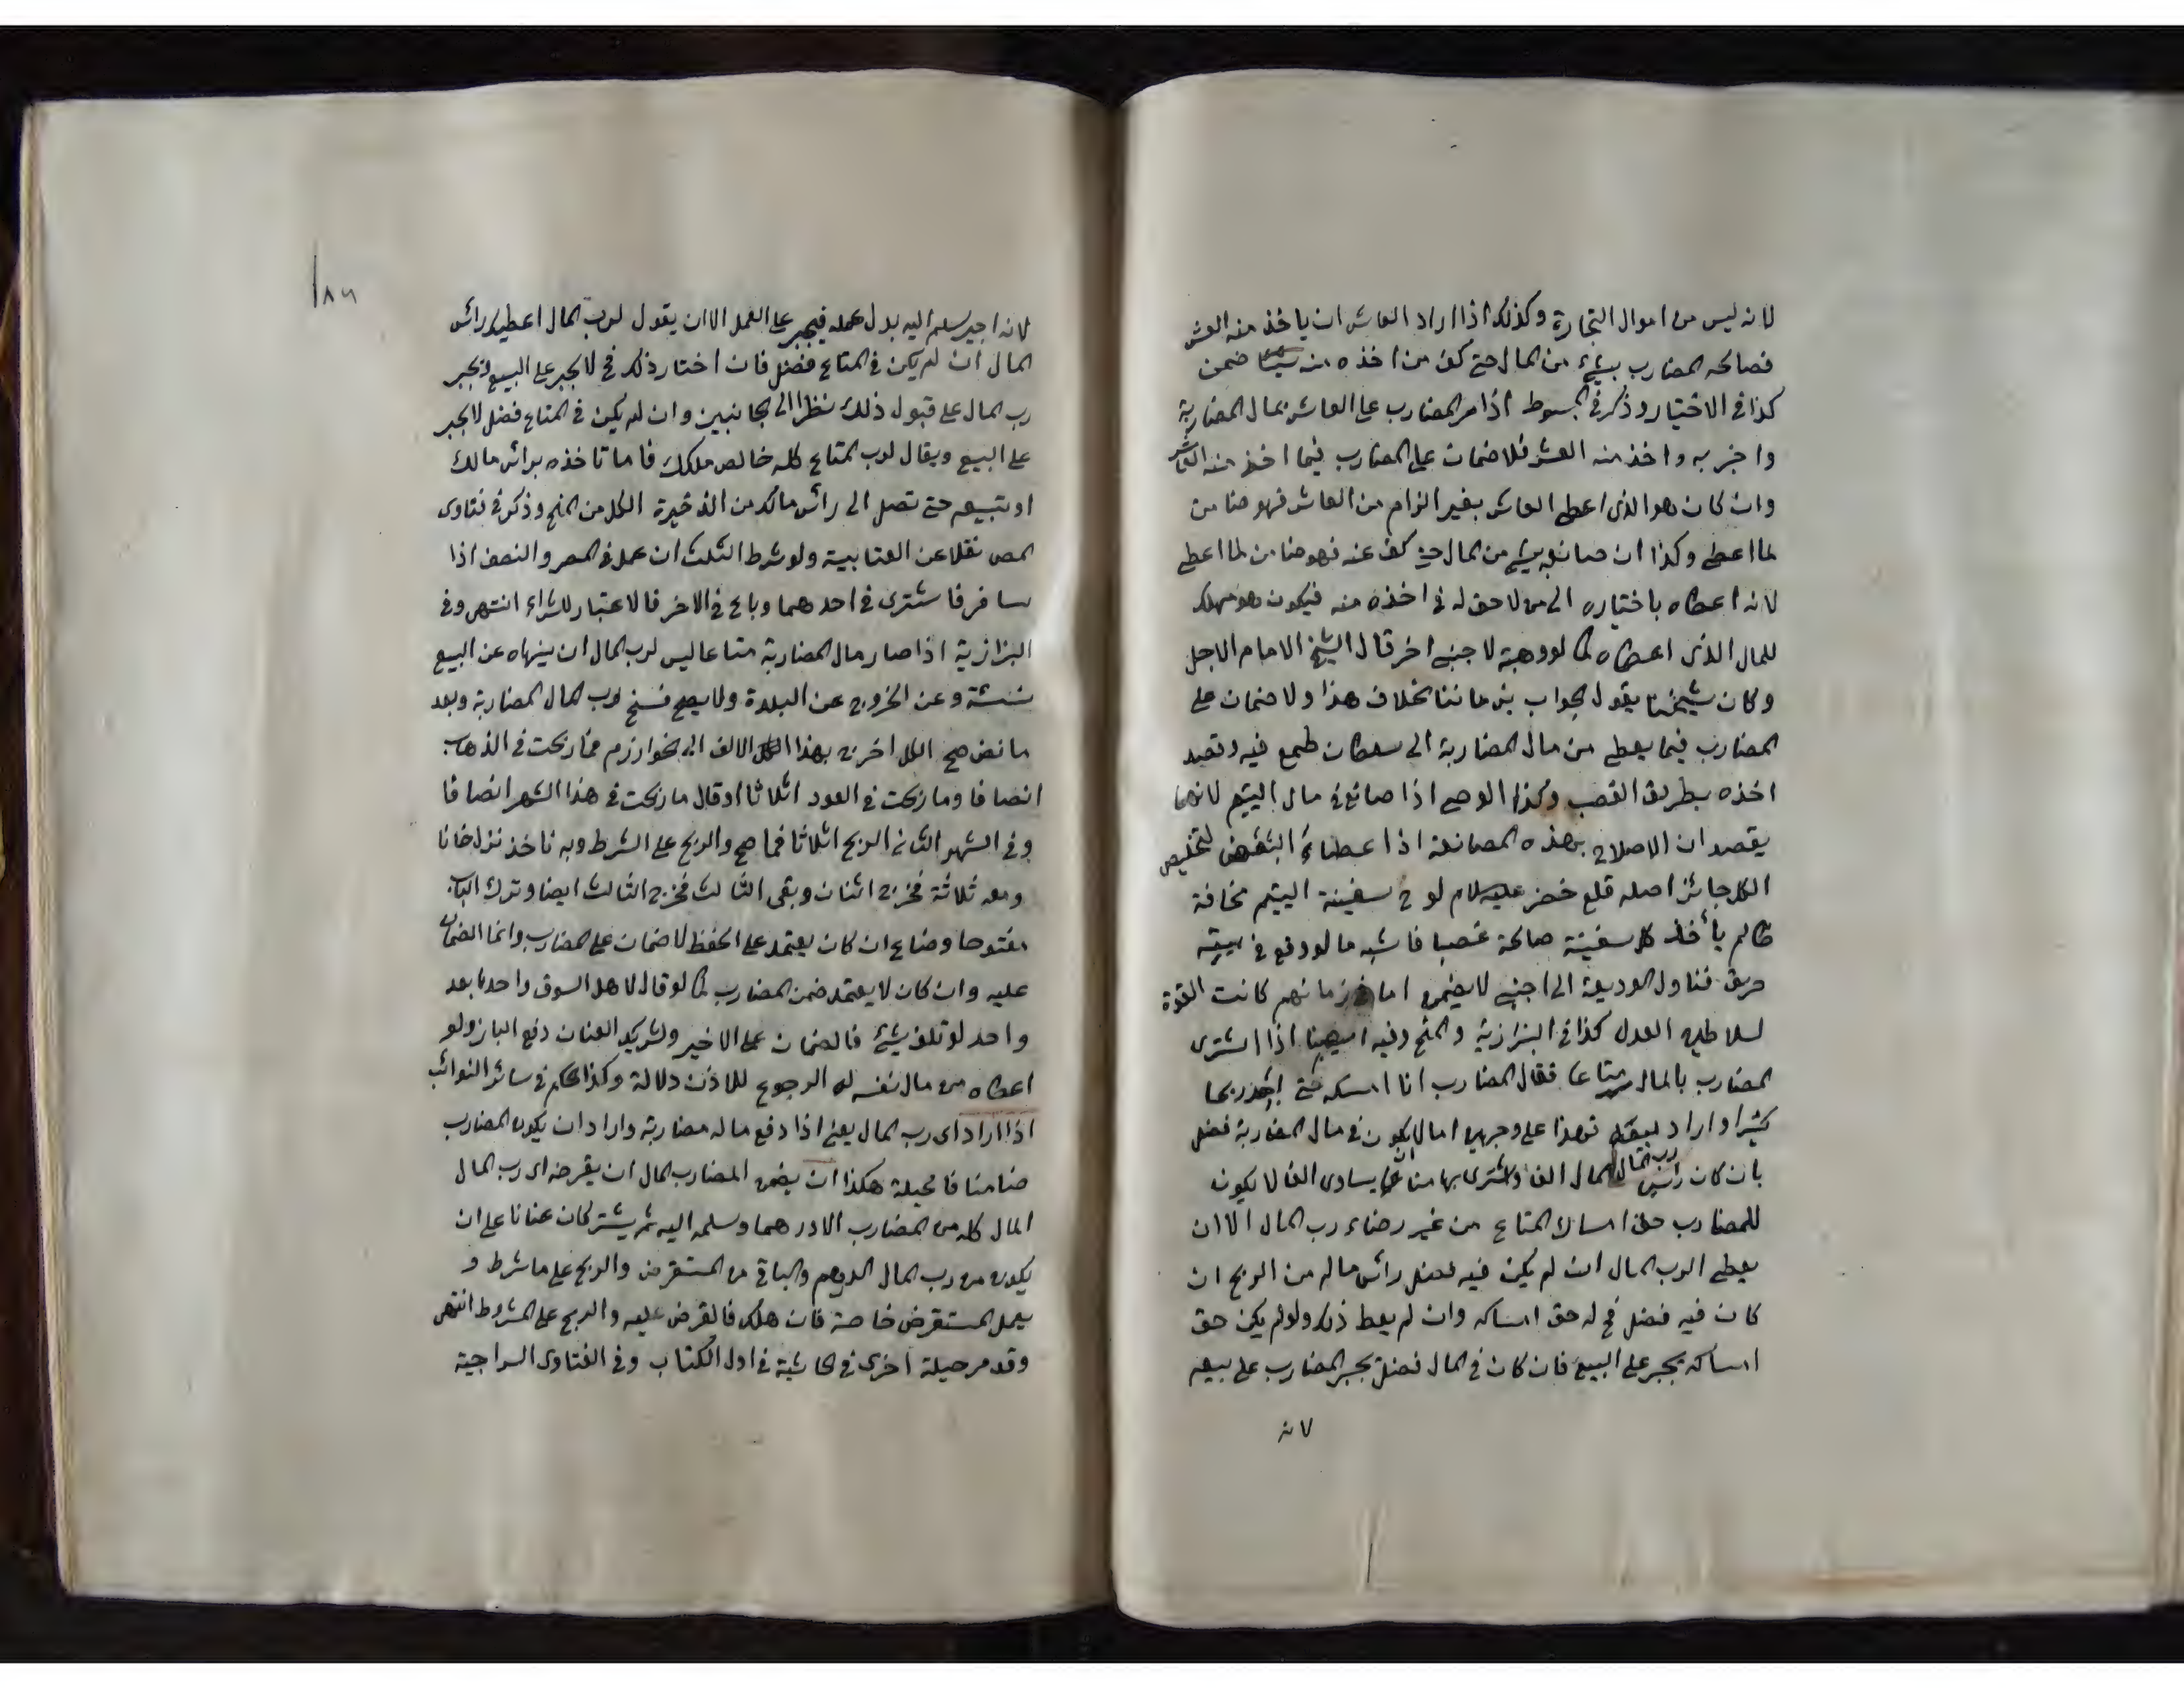 لانه ليس من اموال التجارة وكذلك اذا اراد العاشر ان ياخذ منه العشر
فصالحه المضارب بشيء من المال حتى كف من اخذه منه شيئا ضمن
كذا في الاختيار وذكر في المبسوط اذا مر المضارب على العاشر بمال المضاربة
واخبر به واخذ منه العشر فلا ضمان على المضارب فيما اخذ منه العاشر
وان كان هو الذي اعطى العاشر بغير الزام من العاشر فهو ضامن
لما اعطى وكذا ان صانعه بشيء من المال حتى كف عنه فهو ضامن لما اعطى
لانه اعطاه باختياره الى من لا حق له في اخذه منه فيكون هو مهلك
للمال الذي اعطاه كما لو وهبه لاجنبي اخر قال الشيخ الامام الاجل
وكان شيخنا يقول الجواب في زماننا بخلاف هذا ولا ضمان على
المضارب فيما يعطى من مال المضاربة الى سلطان طمع فيه وقصد
اخذه بطريق الغصب وكذا الوصي اذا صانع في مال اليتيم لانهما
يقصدان الاصلاح بهذه المصانعة اذ اعطاء البعض لتخليص
الكل جائز اصله قلع خضر عليه السلام لوح سفينة اليتيم مخافة
ظالم يأخذ كل سفينة صالحة غصبا فاشبه ما لو وقع في بيته
حريق فناول الوديعة الى اجنبي لا يضمن اما في زمانهم كانت القوة
لسلاطين العدل كذا في البزازية والمنح وفيه ايضا اذا اشترى
المضارب بالمال متاعا فقال المضارب انا امسكه حتى اجد ربحا
كثيرا واراد بيعه فهذا على وجهين اما ان يكون في مال المضاربة فضل
رب المال
بان كان رأس المال الفا واشترى بها متاعا يساوى الفا لا يكون
للمضارب حق امساك المتاع من غير رضاء رب المال الا ان
يعطى الرب المال ان لم يكن فيه فضل رأس ماله من الربح ان
كان فيه فضل فح له حق امساكه وان لم يعط ذلك ولو لم يكن حق
امساكه يجبر على البيع فان كان في المال فضل يجبر المضارب على بيعه
لانه
١٨٦
لانه اجير سلم اليه بدل عمله فيجبر على العمل الا ان يقول لرب المال اعطيك رأس
المال ان لم يكن في المتاع فضل فان اختار ذلك فح لا يجبر على البيع ويجبر
رب المال على قبول ذلك نظرا الى الجانبين وان لم يكن في المتاع فضل لا يجبر
على البيع ويقال لرب المتاع كله خالص ملكك فاما تاخذه برأس مالك
او تبيعه حتى تصل الى رأس مالك من الذخيرة الكل من المنح وذكر في فتاوى
المص نقلا عن العتابية ولو شرط الثلث ان عمل في المصر والنصف اذا
سافر فاشترى في احدهما وباع في الاخر فالاعتبار للشراء انتهى وفي
البزازية اذا صار مال المضاربة متاعا ليس لرب المال ان ينهاه عن البيع
نسئة وعن الخروج عن البلدة ولا يصح فسخ رب المال المضاربة وبعد
ما نض صح الكل اخرج بهذا الالف الى خوارزم فما ربحت في الذهاب
انصافا وما ربحت في العود اثلاثا او قال ما ربحت في هذا الشهر انصافا
وفي الشهر الثاني الربح اثلاثا فما صح والربح على الشرط وبه ناخذ نزل خانا
ومعه ثلاثة فخرج اثنان وبقى الثالث فخرج الثالث ايضا وترك الباب
مفتوحا وضاع ان كان يعتمد على الحفظ لا ضمان على المضارب وانما الضمان
عليه وان كان لا يعتمد ضمن المضارب كما لو قال لاهل السوق واحدا بعد
واحد لو تلف شيئ فالضمان على الاخير ولشريك العنان دفع الباز ولو
اعطاه من مال نفسه له الرجوع للاذن دلالة وكذا الحكم في سائر النوائب
اذا اراد اى رب المال يعني اذا دفع ماله مضاربة واراد ان يكون المضارب
ضامنا فالحيلة هكذا ان يضمن المضارب المال ان يقرضه اى رب المال
المال كله من المضارب الا درهما وسلمه اليه ثم يشتركان عنانا على ان
يكون من رب المال الدرهم والباقى من المستقرض والربح على ما شرط و
يعمل المستقرض خاصة فان هلك فالقرض عليه والربح على المشروط انتهى
وقد مر حيلة اخرى في الحاشية في اول الكتاب وفي الفتاوى السراجية